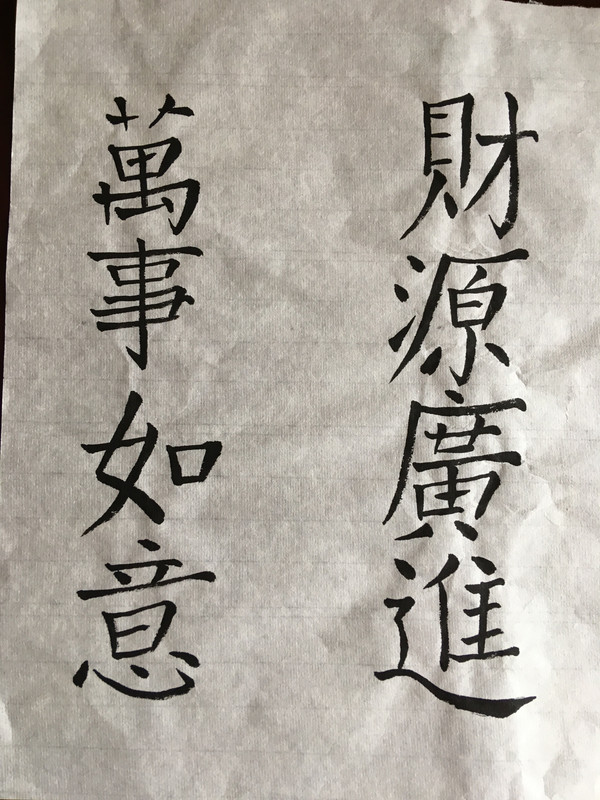 財源廣進
萬事如意